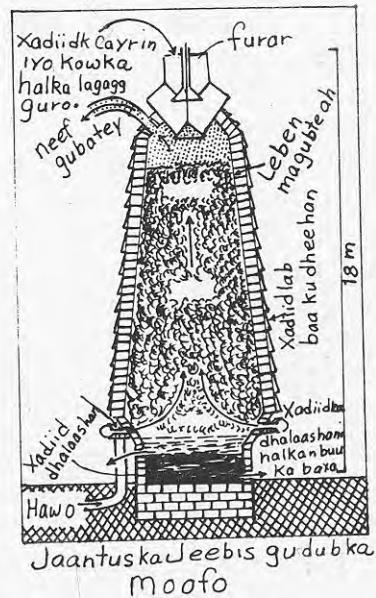 Xadiidk cayrin
iyo kowka
halka lagagg
guro.
furar
neef
gubatey
Leben
magubte ah
Xadiidlab
baa ku dheehan
18 m
Xadiid
dhalaashan
Xadiidka
dhalaashani
halkan buu
ka baxa
Hawo
Jaantuska Jeebis gudubka
Moofo